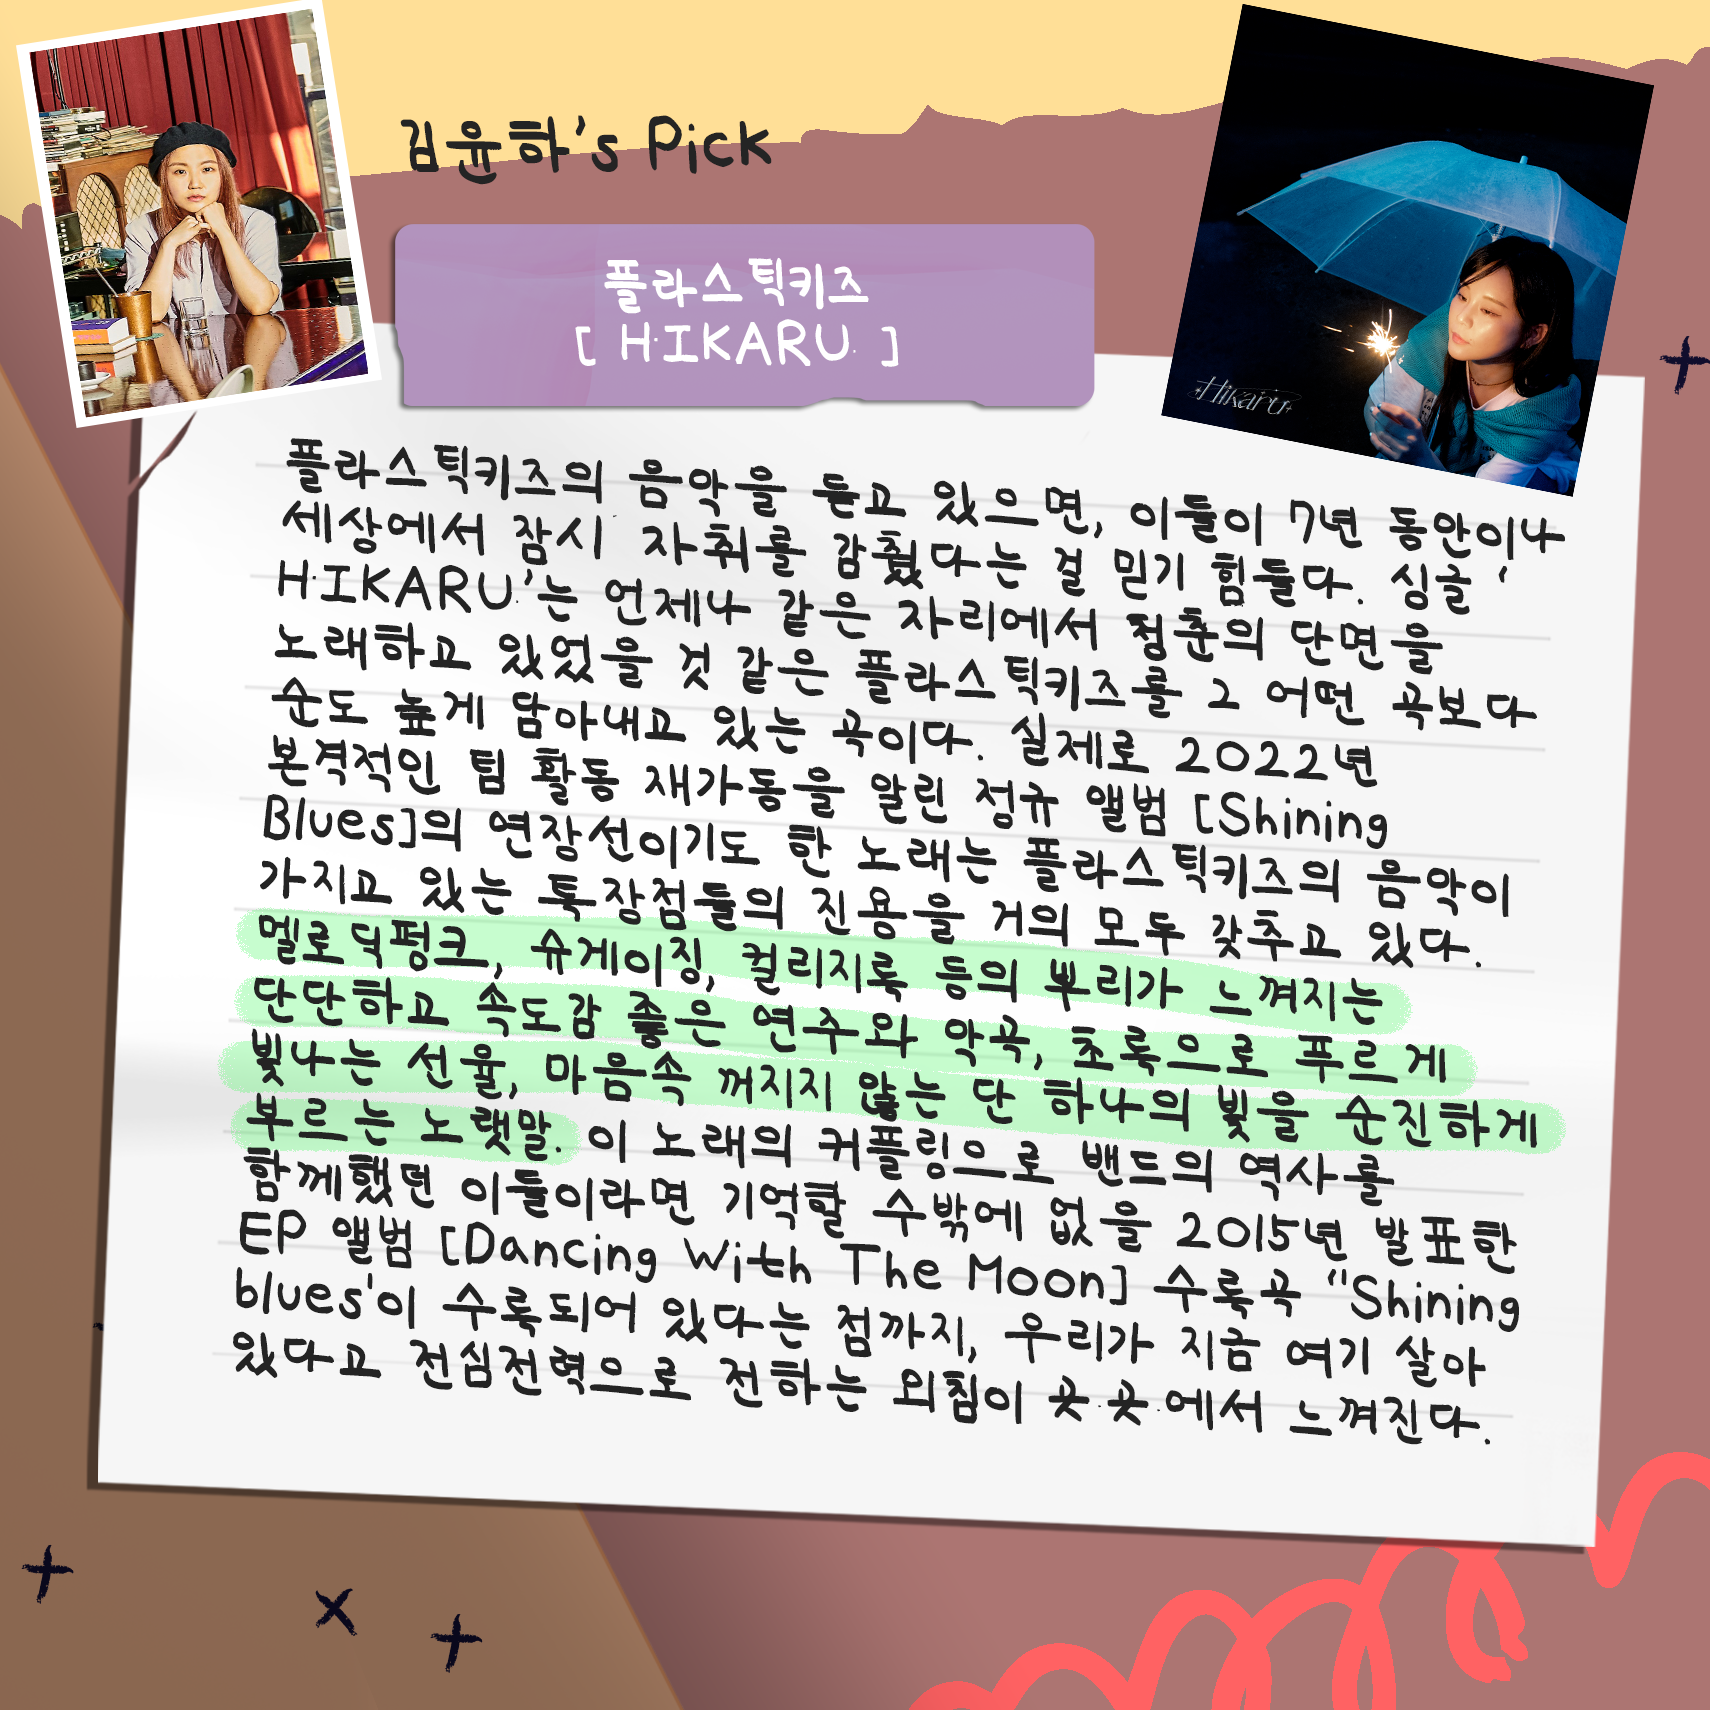 김윤하's Pick
플라스틱키즈
[ H.IKARU. ]
Hikaru
플라스틱키즈의 음악을 듣고 있으면, 이들이 7년 동안이나
세상에서 잠시 자취를 감췄다는 걸 믿기 힘들다. 싱글 '
H.IKARU.'는 언제나 같은 자리에서 청춘의 단면을
노래하고 있었을 것 같은 플라스틱키즈를 그 어떤 곡보다
순도 높게 담아내고 있는 곡이다. 실제로 2022년
본격적인 팀 활동 재가동을 알린 정규 앨범 [Shining
Blues]의 연장선이기도 한 노래는 플라스틱키즈의 음악이
가지고 있는 특장점들의 진용을 거의 모두 갖추고 있다.
멜로딕펑크, 슈게이징, 컬리지록 등의 뿌리가 느껴지는
단단하고 속도감 좋은 연주와 악곡, 초록으로 푸르게
빛나는 선율, 마음속 꺼지지 않는 단 하나의 빛을 순진하게
부르는 노랫말. 이 노래의 커플링으로 밴드의 역사를
함께했던 이들이라면 기억할 수밖에 없을 2015년 발표한
EP 앨범 [Dancing With The Moon] 수록곡 "Shining
blues'이 수록되어 있다는 점까지, 우리가 지금 여기 살아
있다고 전심전력으로 전하는 외침이 곳.곳.에서 느껴진다.